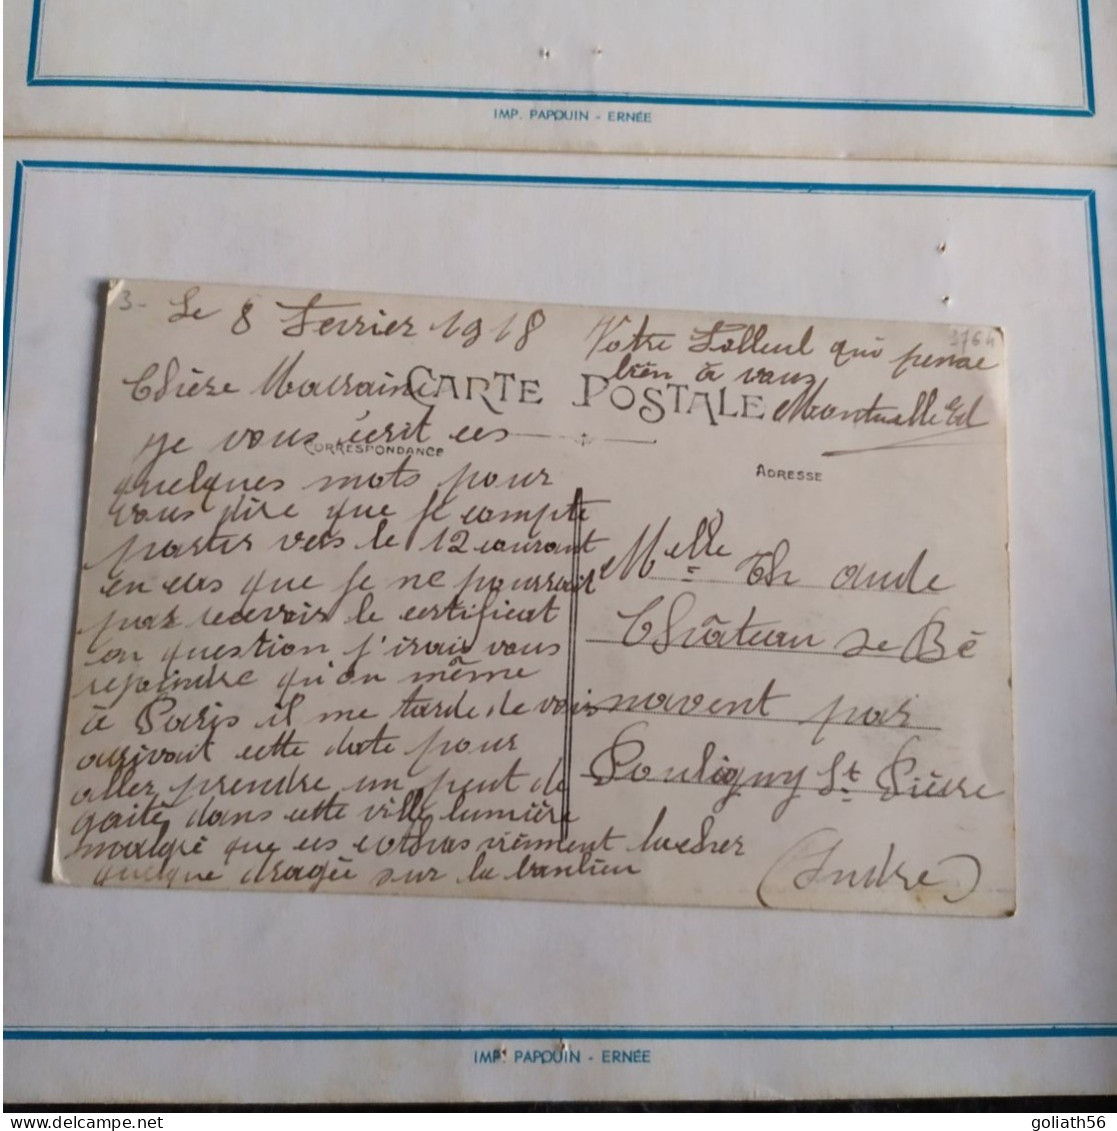 IMP. PAPOUIN - ERNÉE
3-
3764
Le 8 Fevrier 1918
Chière Marraine
je vous écrit ces
quelques mots pour
vous dire que je compte
partir vers le 12 courant
en cas que je ne pourrait
pas recevoir le certificat
en question j'irais vous
rejoindre qu'on même
à Paris il me tarde de voir
arrivait cette date pour
aller prendre un peut de
gaité dans cette ville lumière
malgré que ces viennent lacher
quelque dragée sur la banlieu
Votre Filleul qui pense
bien à vous
CARTE POSTALE
CORRESPONDANCE
ADRESSE
Melle Th aude
Château de Bé
navent par
Pouligny St Pière
(Indre)
IMP. PAPOUIN - ERNÉE
goliath56